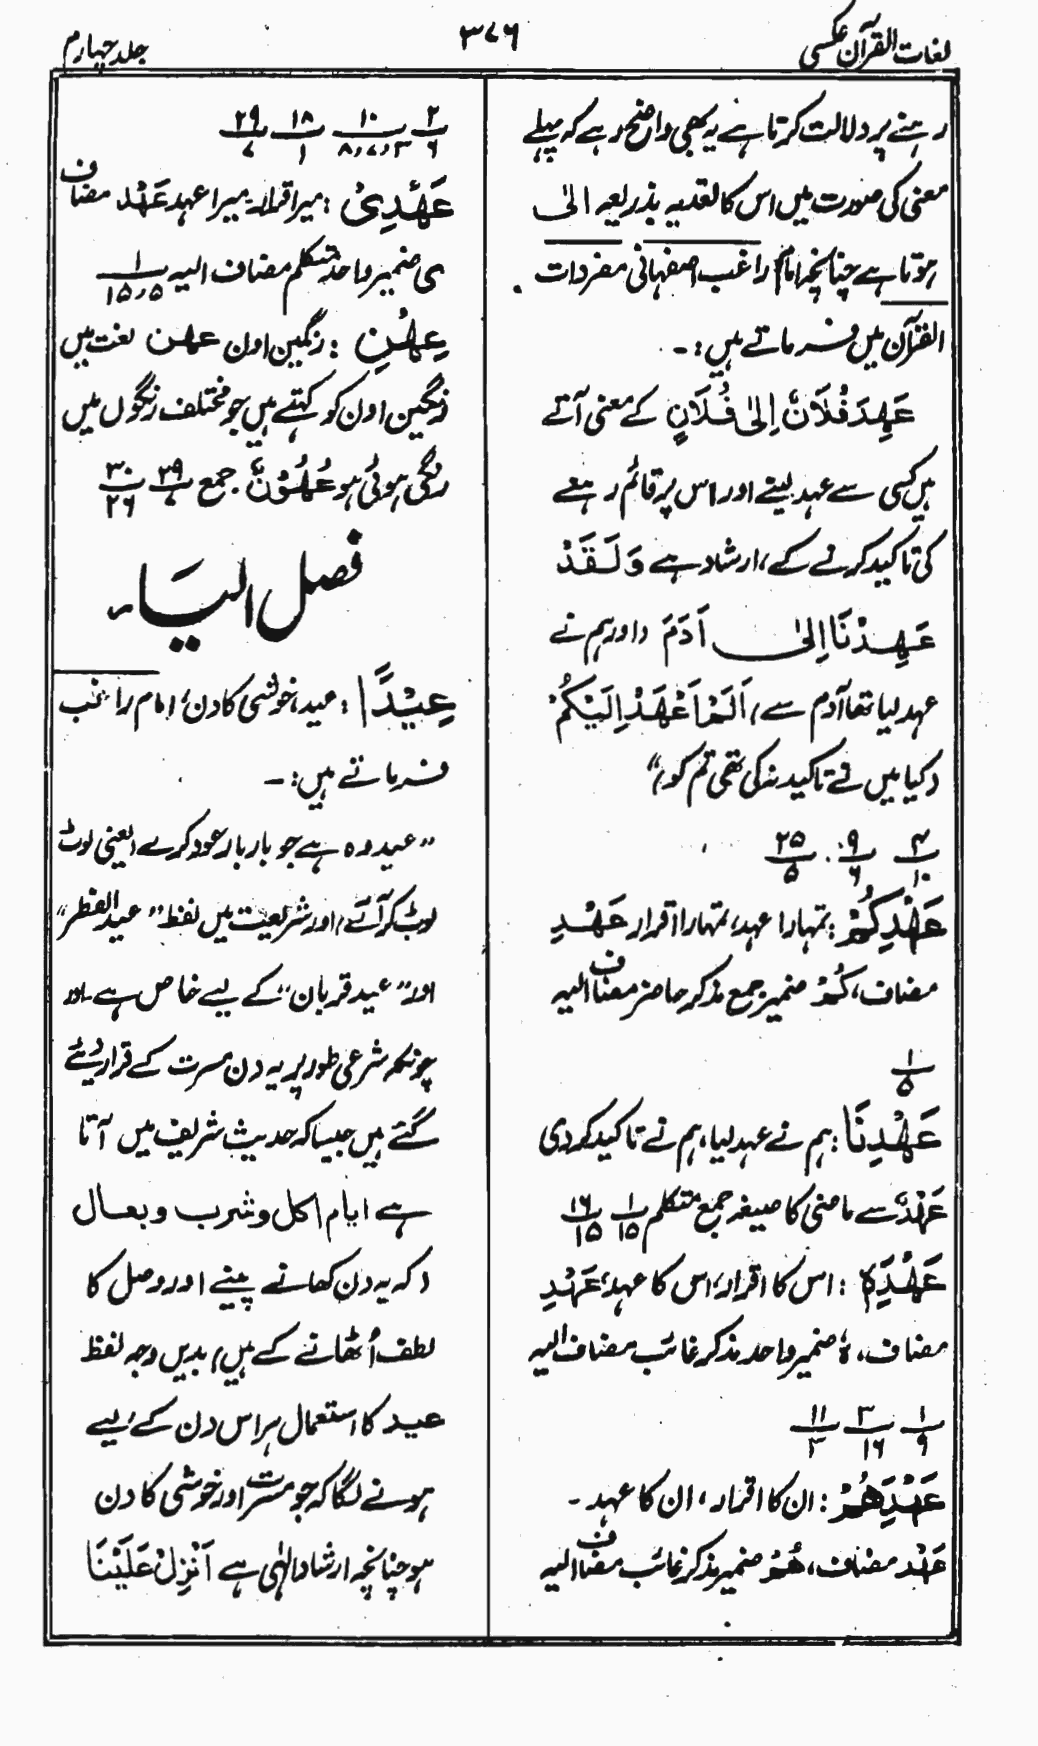 لغات القرآن عکسی
۳۷۶
جلد چہارم
رہنے پر دلالت کرتا ہے یہ بھی واضح رہے کہ پہلے
معنی کی صورت میں اس کا تعدیہ بذریعہ الیٰ
ہوتا ہے چنانچہ امام راغب اصفہانی مفردات
القرآن میں فرماتے ہیں:۔
عَهِدَ فُلَانٌ اِلیٰ فُلَانٍ کے معنی آتے
ہیں کسی سے عہد لینے اور اس پر قائم رہنے
کی تاکید کرنے کے، ارشاد ہے وَلَقَدْ
عَهِدْنَا اِلیٰ اٰدَمَ (اور ہم نے
عہد لیا تھا آدم سے) اَلَمْ اَعْهَدْ اِلَيْكُمْ
(کیا میں نے تاکید نہ کی تھی تم کو)“
۴/۱۰ ۹/۶ ۲۵/۵
عَهْدِكُمْ: تمہارا عہد، تمہارا اقرار عَهْدِ
مضاف، كُمْ ضمیر جمع مذکر حاضر مضاف الیہ
۱/۵
عَهِدْنَا: ہم نے عہد لیا، ہم نے تاکید کردی
عَهْدٌ سے ماضی کا صیغہ جمع متکلم ۱/۱۵ ۱۶/۱۵
عَهْدِهٖ: اس کا اقرار، اس کا عہد، عَهْدِ
مضاف، ہٗ ضمیر واحد مذکر غائب مضاف الیہ
۱/۹ ۳/۱۶ ۱۱/۳
عَهْدِهِمْ: ان کا اقرار، ان کا عہد۔
عَهْد مضاف، هُمْ ضمیر مذکر غائب مضاف الیہ
۲/۶ ۱۰/۸،۷،۳ ۱۸/۱ ۲۹/۷
عَهْدِیْ: میرا اقرار۔ میرا عہد عَهْد مضاف
ی ضمیر واحد متکلم مضاف الیہ ۱/۱۵،۵
عِهْنِ: رنگین اون عهن لغت میں
رنگین اون کو کہتے ہیں جو مختلف رنگوں میں
رنگی ہوئی ہو عُهُوْنٌ جمع ۲۹/۷ ۳۰/۲۶
فصل الیاء
عِیْدًا: عید، خوشی کا دن، امام راغب
فرماتے ہیں:۔
”عید وہ ہے جو بار بار عود کرے (یعنی لوٹ
لوٹ کر آئے) اور شریعت میں لفظ ”عید الفطر“
اور ”عید قربان“ کے لیے خاص ہے۔ اور
چونکہ شرعی طور پر یہ دن مسرت کے قرار دیئے
گئے ہیں جیسا کہ حدیث شریف میں آتا
ہے ایام اکل وشرب وبعال
(کہ یہ دن کھانے پینے اور وصل کا
لطف اُٹھانے کے ہیں) بدیں وجہ لفظ
عید کا استعمال ہر اس دن کے لیے
ہونے لگا کہ جو مسرت اور خوشی کا دن
ہو چنانچہ ارشاد الٰہی ہے اَنْزِلْ عَلَيْنَا